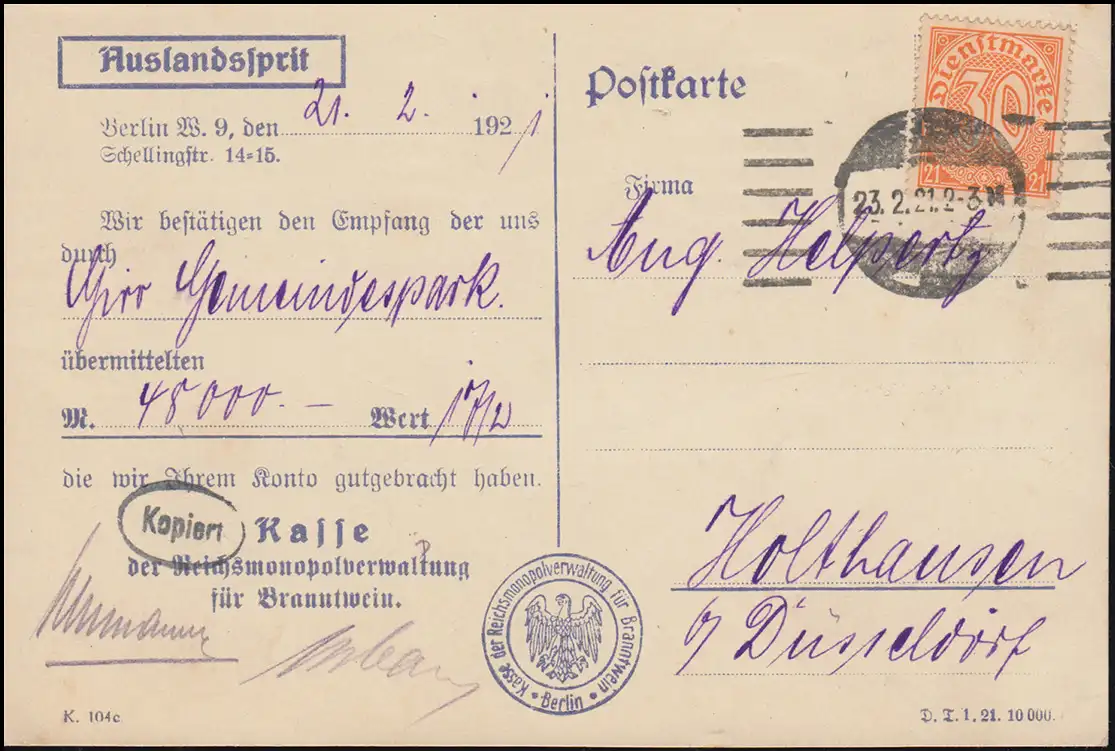 Auslandssprit
Berlin W. 9, den 21. 2. 1921
Schellingstr. 14-15.
Wir bestätigen den Empfang der uns
durch
Giro
übermittelten
M. 48 000.— Wert 17/2
die wir Ihrem Konto gutgebracht haben.
Kopiert
Kasse
der Reichsmonopolverwaltung
für Branntwein.
K. 104c
Kasse der Reichsmonopolverwaltung für Branntwein
• Berlin •
Postkarte
Dienstmarke
30
21 21
23.2.21.2-3N
Firma
Aug.
Holthausen
b/ Düsseldorf
D. T. 1. 21. 10 000.